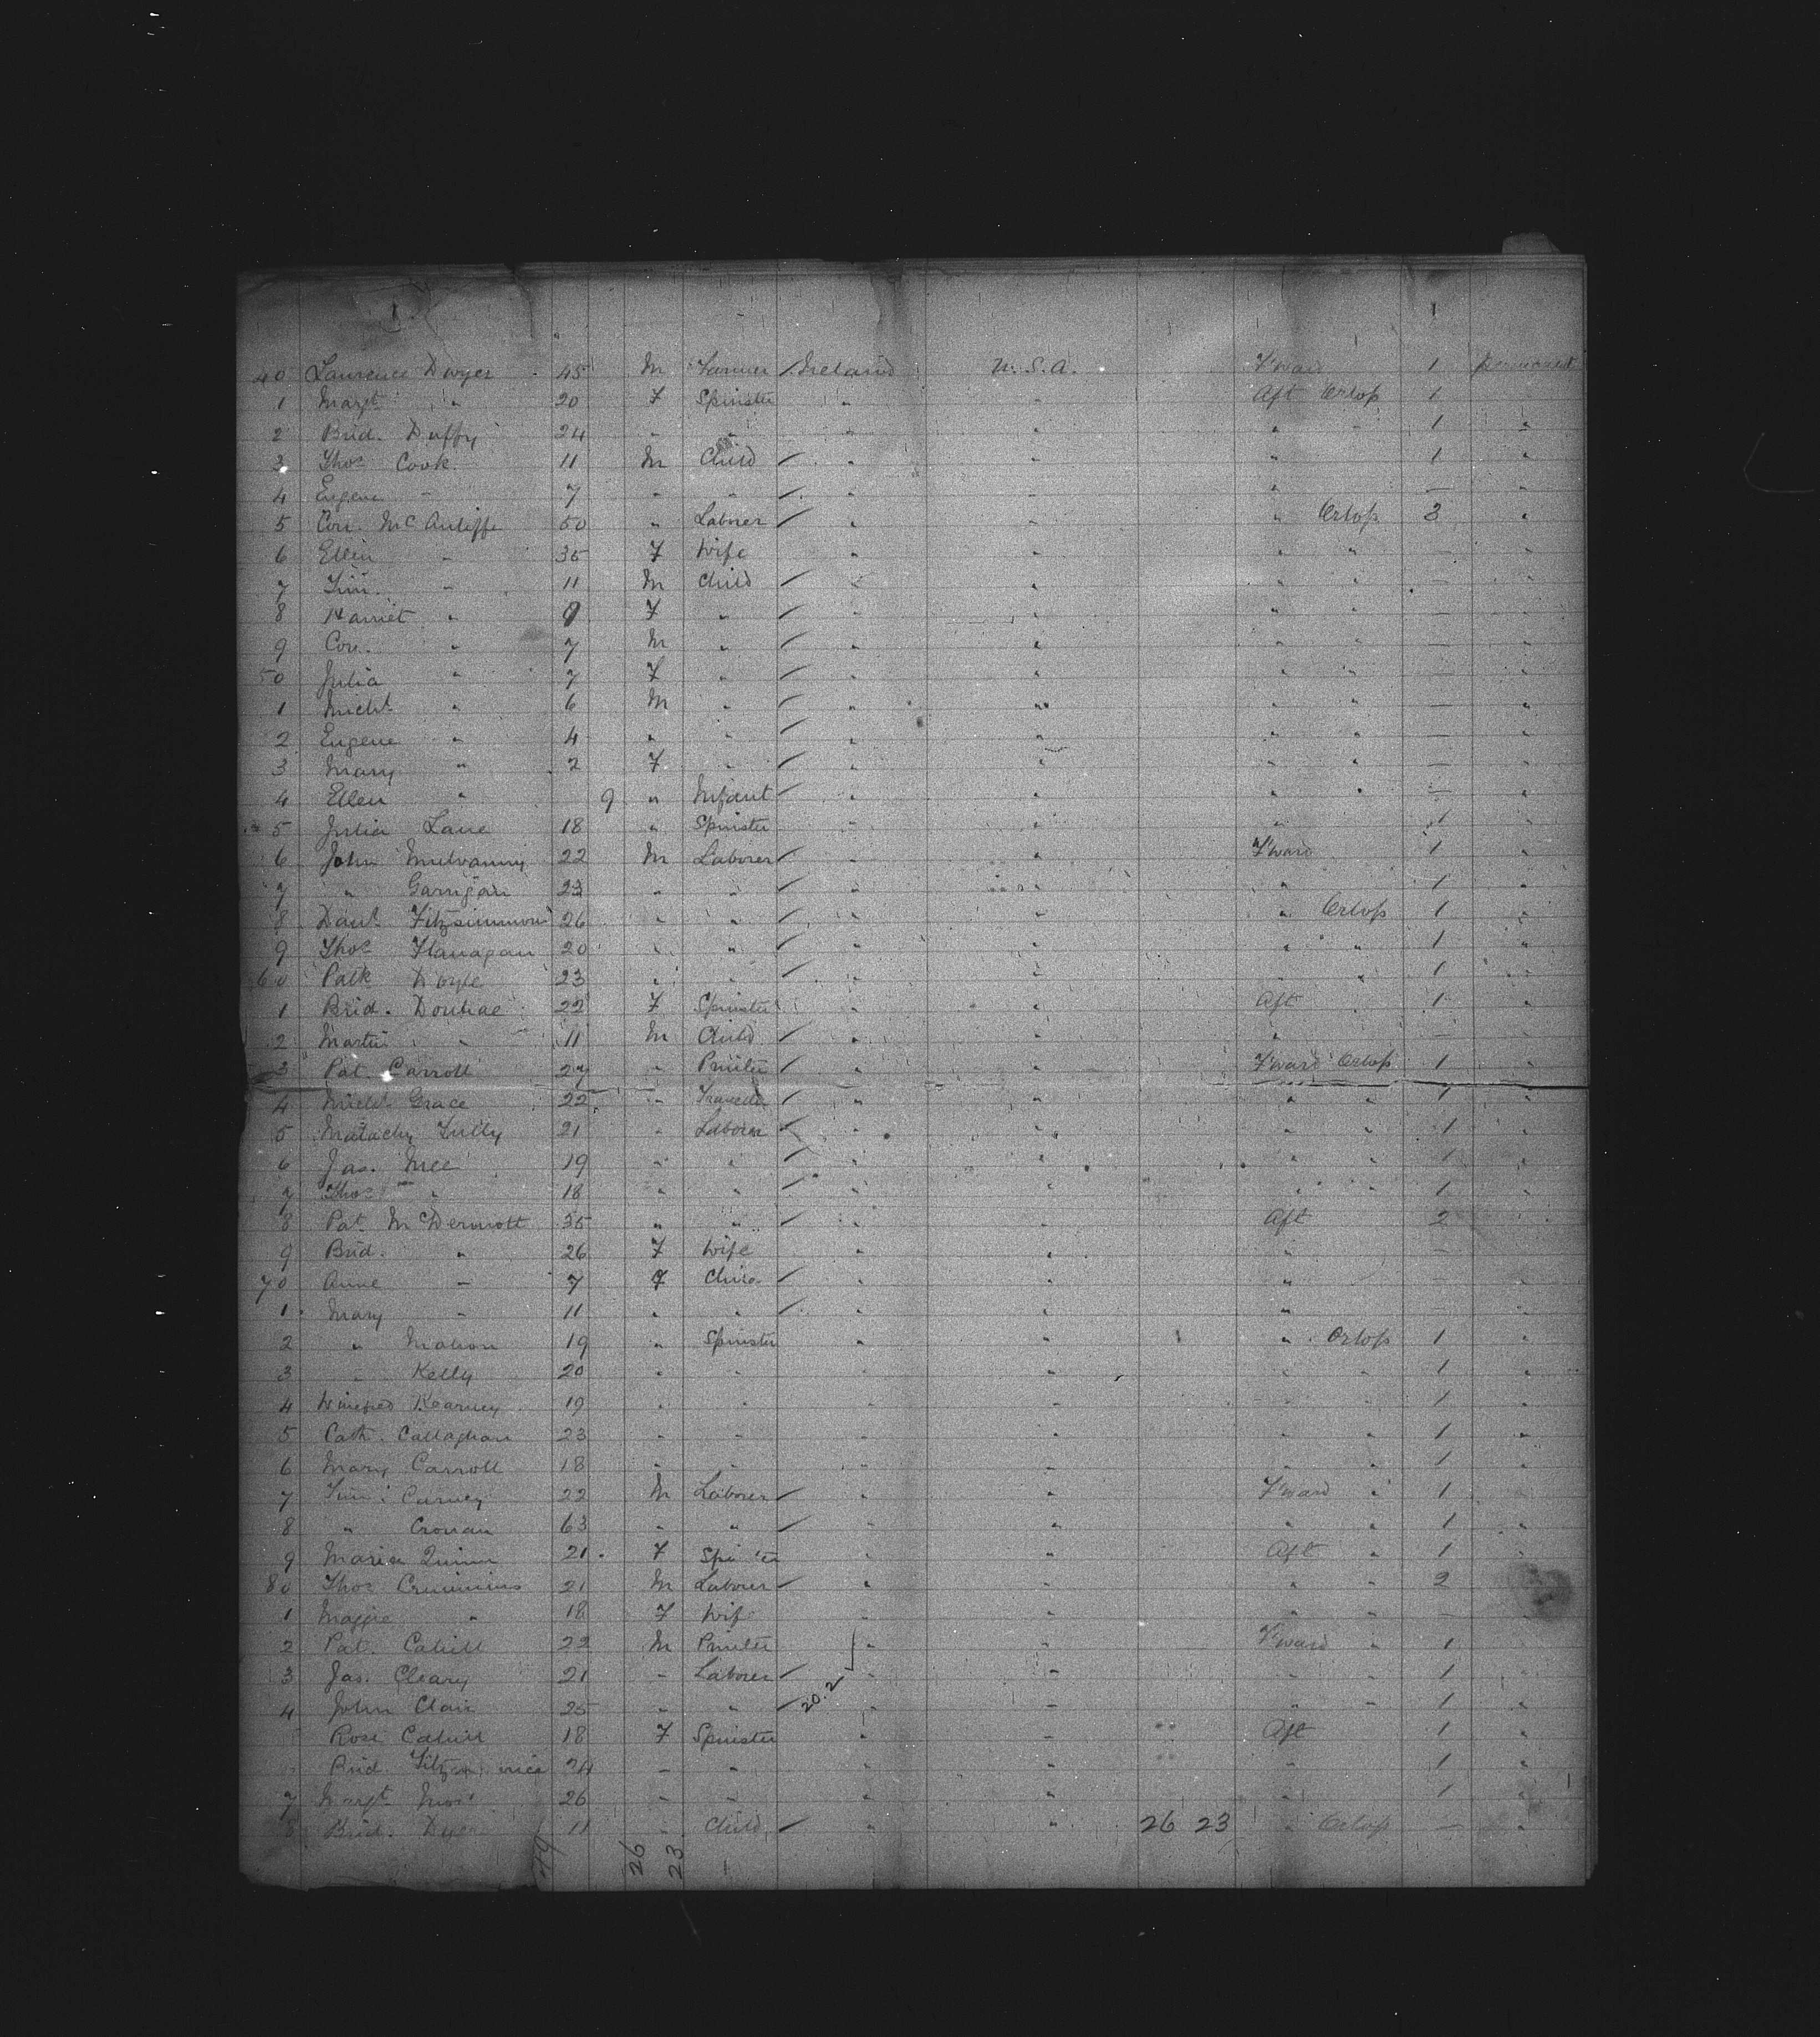 40 Laurence Dwyer 45 M Farmer Ireland U.S.A. F'ward 1 permanent
1 Margt " 20 F Spinster " " Aft Orlop 1
2 Brid. Duffy 24 " " " " " " 1 "
3 Thos Cook 11 M Child " " " 1 "
4 Eugene " 7 " " " " " — "
5 Con. McAuliffe 50 " Laborer " " " Orlop 3 "
6 Ellen " 35 F Wife " " " " — "
7 Tim. " 11 M Child " " " " — "
8 Harriet " 9 F " " " " " — "
9 Con. " 7 M " " " " " — "
50 Julia " 7 F " " " " " — "
1 Michl " 6 M " " " " " — "
2 Eugene " 4 " " " " " " — "
3 Mary " 2 F " " " " " — "
4 Ellen " 9 " Infant " " " " — "
5 Julia Lane 18 " Spinster " " " 1 "
6 John Mulvanny 22 M Laborer " " F'ward 1 "
7 " Garrigan 23 " " " " " 1 "
8 Danl Fitzsimmons 26 " " " " " Orlop 1 "
9 Thos Flanagan 20 " " " " " " 1 "
60 Patk Doyle 23 " " " " " " 1 "
1 Brid. 22 F Spinster " " Aft 1 "
2 Martin " 11 M Child " " " — "
3 Pat. Carroll 27 " Printer " " F'ward Orlop 1 "
4 Michl Grace 22 " " " " " 1 "
5 Malachy Tully 21 " Laborer " " " " 1 "
6 Jas. Mee 19 " " " " " " 1 "
7 Thos " 18 " " " " " " 1 "
8 Pat. McDermott 35 " " " " Aft 2 "
9 Brid. " 26 F Wife " " " — "
70 Anne " 7 F Child " " " "
1 Mary " 11 " " " " " "
2 " Mahon 19 " Spinster " " " Orlop 1 "
3 " Kelly 20 " " " " " " 1 "
4 Winefred Kearney 19 " " " " " " 1 "
5 Cath. Callaghan 23 " " " " " " 1 "
6 Mary Carroll 18 " " " " " " 1 "
7 Tim. Curney 22 M Laborer " " F'ward " 1 "
8 " Cronan 63 " " " " " " 1 "
9 Maria Quinn 21 F Spinster " " Aft " 1 "
80 Thos Crummins 21 M Laborer " " " " 2 "
1 Maggie " 18 F Wife " " " " — "
2 Pat. Cahill 22 M Printer " " F'ward " 1 "
3 Jas. Cleary 21 " Laborer " " " " 1 "
4 John Clair 25 " " 20.2 " " " " 1 "
Rose Cahill 18 F Spinster " " Aft 1 "
Brid. 24 " " " " " 1 "
7 Margt 26 " " " " " 1 "
8 Brid. 11 " Child " " 26 23 " Orlop — "
49 26 23